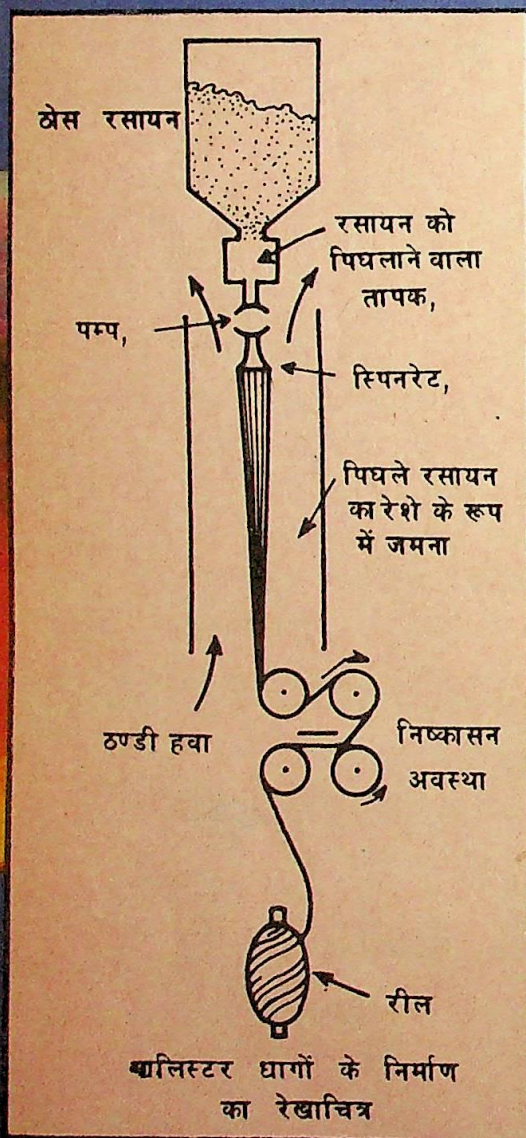 ठोस रसायन
रसायन को
पिघलाने वाला
तापक,
पम्प,
स्पिनरेट,
पिघले रसायन
का रेशे के रूप
में जमना
ठण्डी हवा
निष्कासन
अवस्था
रील
पालिस्टर धागों के निर्माण
का रेखाचित्र